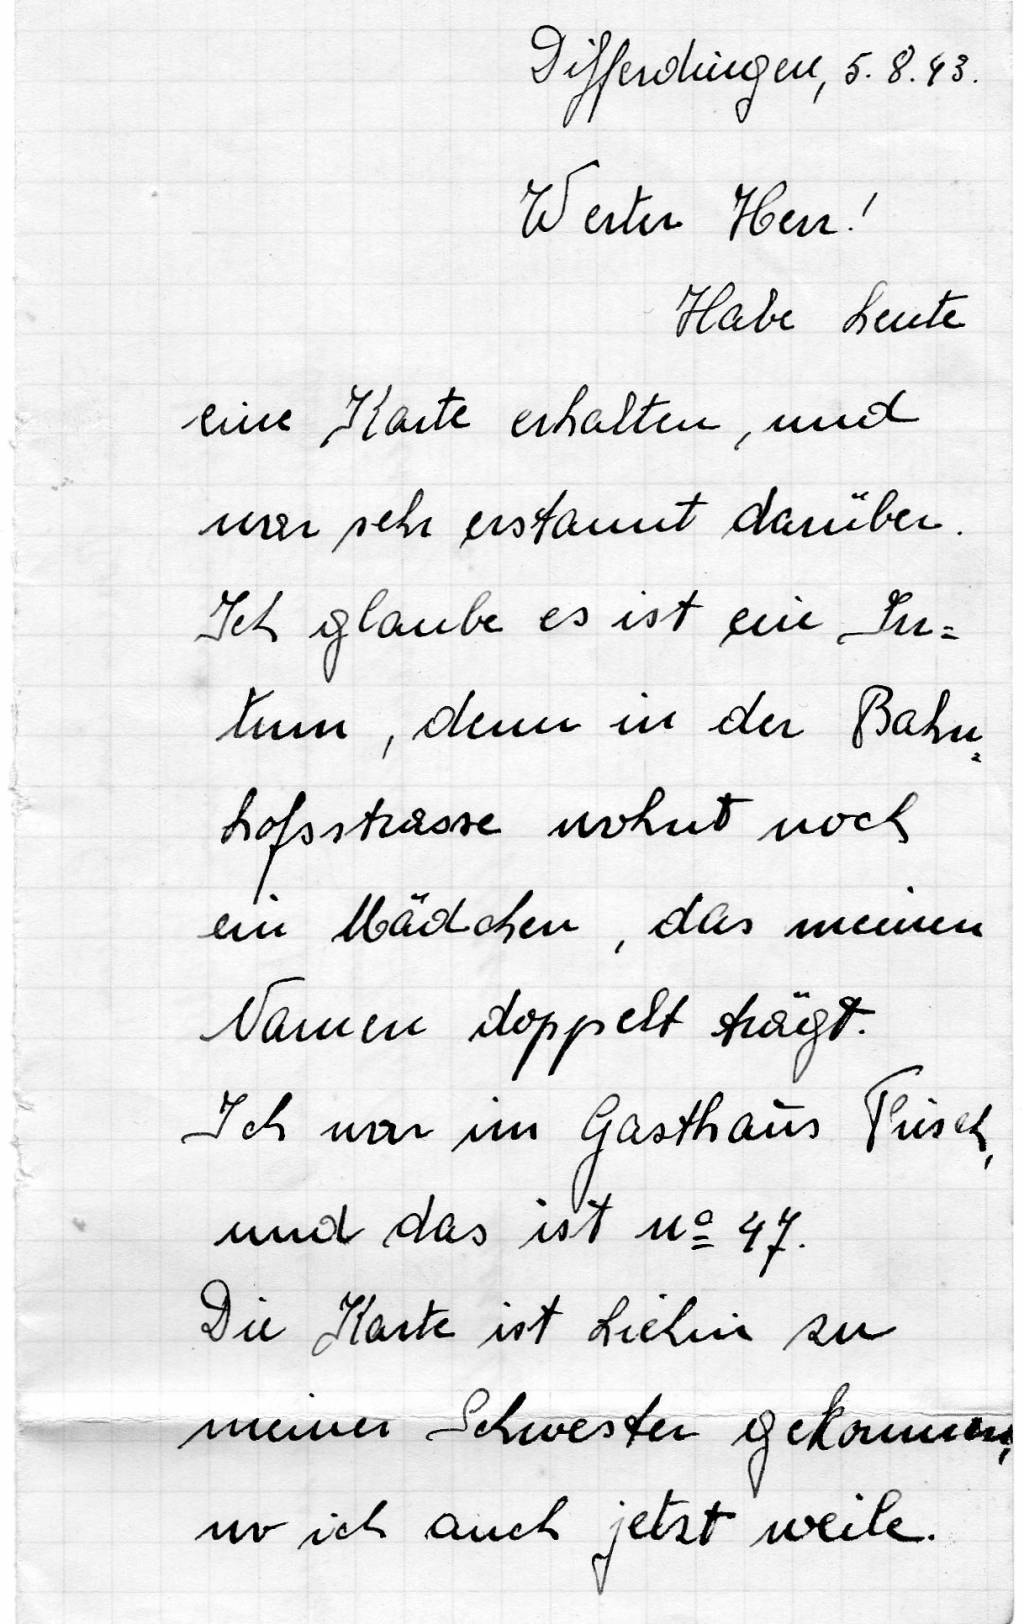 Differdingen, 5. 8. 43.
Werter Herr!
Habe heute
eine Karte erhalten, und
war sehr erstaunt darüber.
Ich glaube es ist ein Irr=
tum, denn in der Bahn=
hofsstrasse wohnt noch
ein Mädchen, das meinen
Namen doppelt trägt.
Ich war im Gasthaus
und das ist nº 47.
Die Karte ist hiehin zu
meiner Schwester gekommen,
wo ich auch jetzt weile.